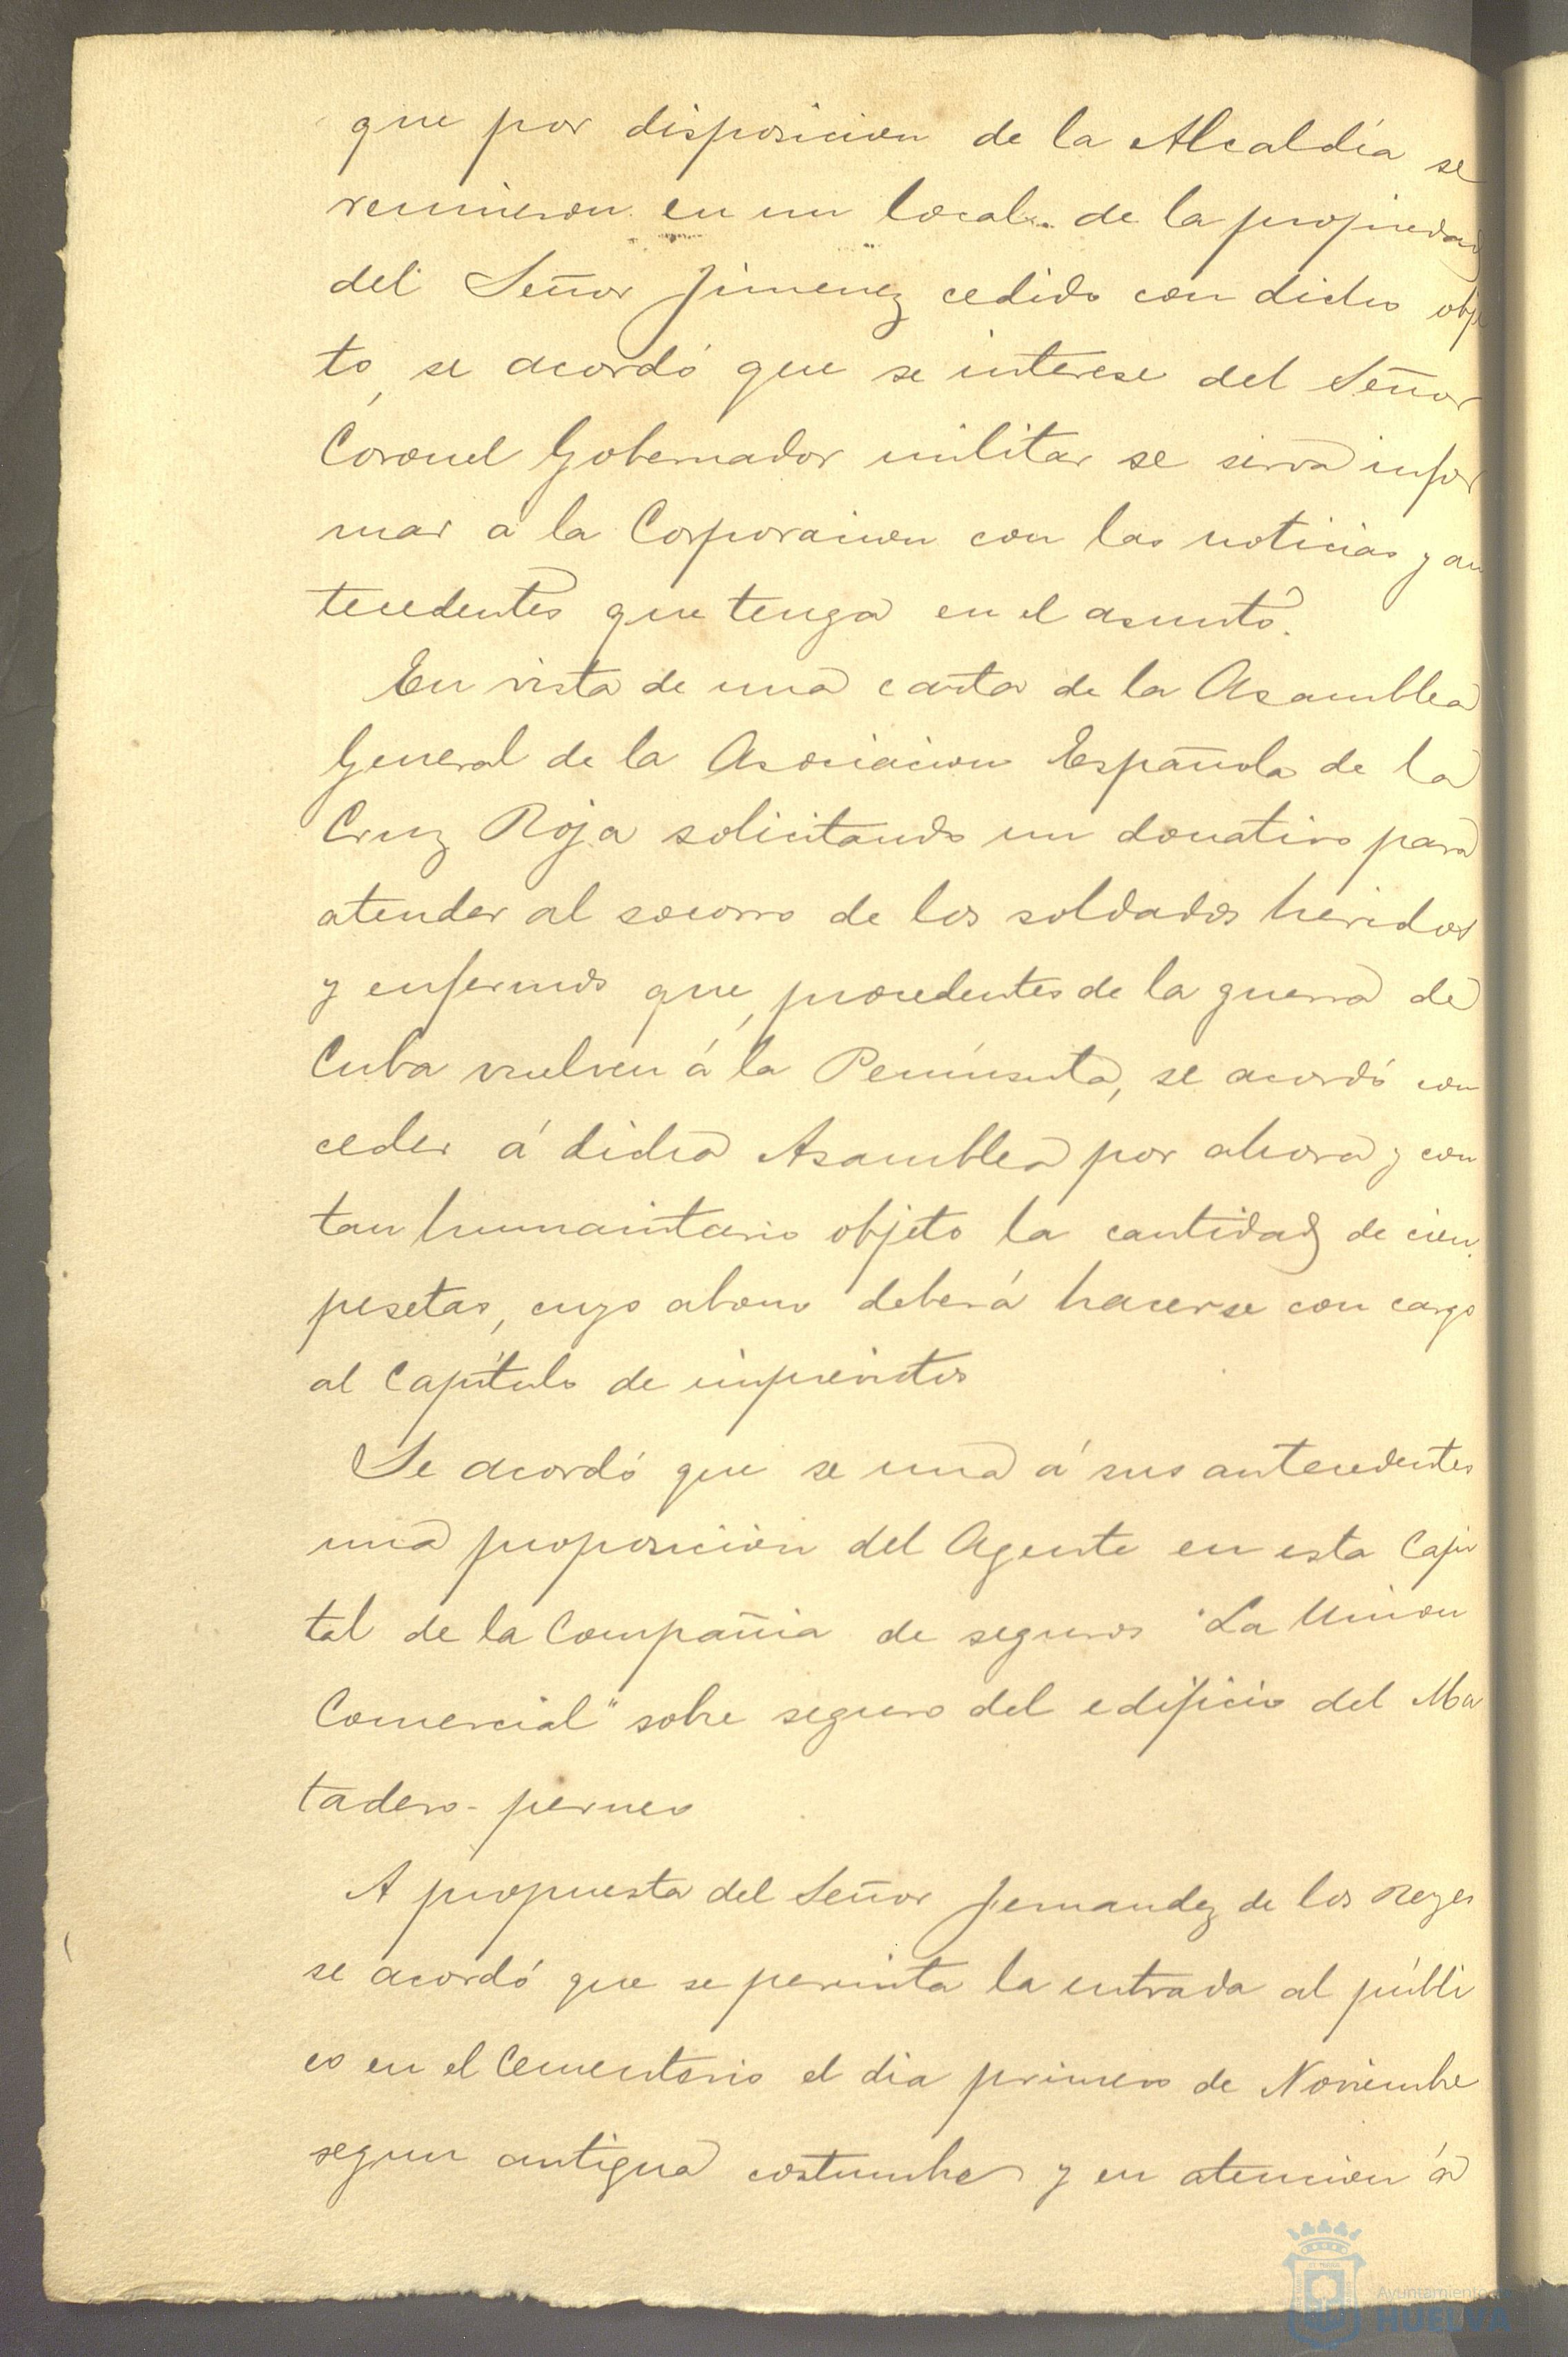 que por disposicion de la Alcaldía se
reunieron en un local de la propiedad
del Señor Jimenez cedido con dicho obje
to, se acordó que se interese del Señor
Coronel Gobernador militar se sirva infor
mar a la Corporacion con las noticias y an
tecedentes que tenga en el asunto.
En vista de una carta de la Asamblea
General de la Asociacion Española de la
Cruz Roja solicitando un donativo para
atender al socorro de los soldados heridos
y enfermos que, procedentes de la guerra de
Cuba vuelven á la Península, se acordó con
ceder á dicha Asamblea por ahora y con
tan humanitario objeto la cantidad de cien
pesetas, cuyo abono deberá hacerse con cargo
al Capítulo de imprevistos
Se acordó que se una á sus antecedentes
una proposición del Agente en esta Capi
tal de la Compañia de seguros "La Union
Comercial" sobre seguro del edificio del Ma
tadero-perneo
A propuesta del Señor Fernandez de los Reyes
se acordó que se permita la entrada al públi
co en el Cementerio el dia primero de Noviembre
segun antigua costumbre y en atencion á
Ayuntamiento
HUELVA